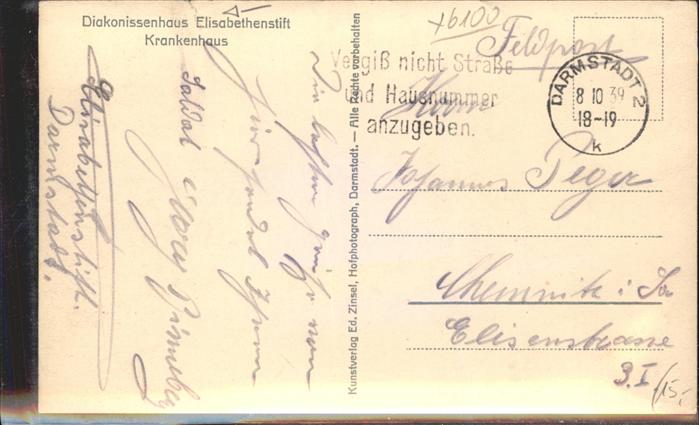 Diakonissenhaus Elisabethenstift
Krankenhaus
Die besten Grüße von
hier sendet Ihnen
Soldat Georg
Elisabethenstift.
Darmstadt.
Kunstverlag Ed. Zinsel, Hofphotograph, Darmstadt. — Alle Rechte vorbehalten
6100
Feldpost
Vergiß nicht Straße
und Hausnummer
anzugeben.
DARMSTADT 2
8 10 39
18-19
k
Herrn
Johannes Peger
Chemnitz i. Sa
Elisenstrasse
3. I
15,-